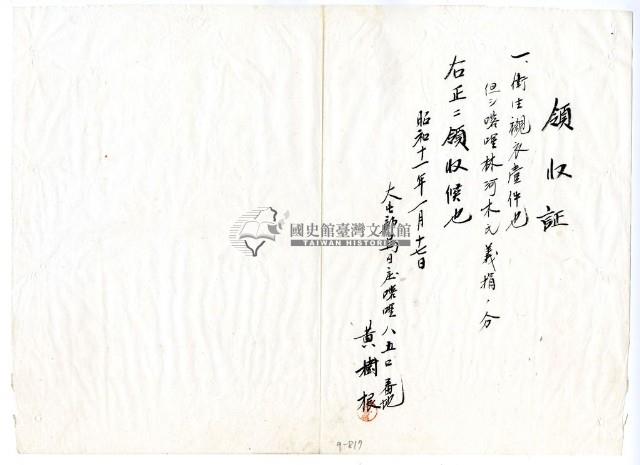 領収証
一、衛生襯衣壹件也
但シ喀哩林河木氏義捐ノ分
右正ニ領収候也
昭和十一年一月十七日
大屯郡烏日庄喀哩八五口番地
黄樹根
國史館臺灣文獻館
TAIWAN HISTORI
9-817